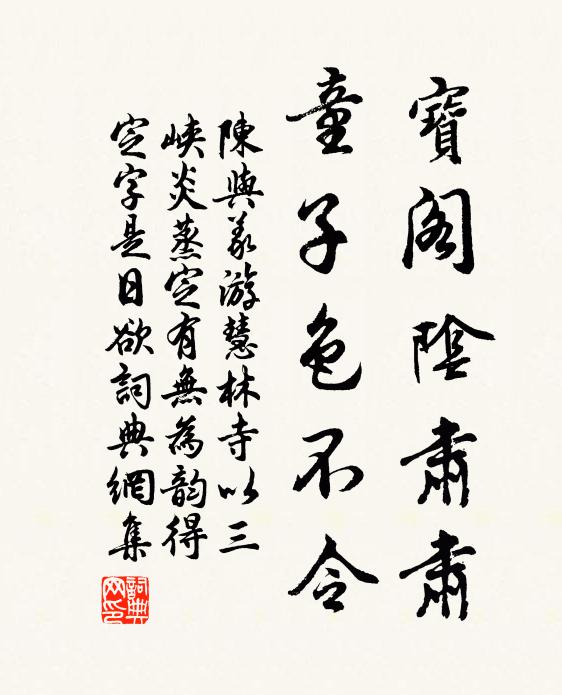 寶閣陰肅肅
童子色不令
陳與義游慧林寺以三
峽炎蒸定有無為韵得
定字是日欲詞典網集
詞典網印